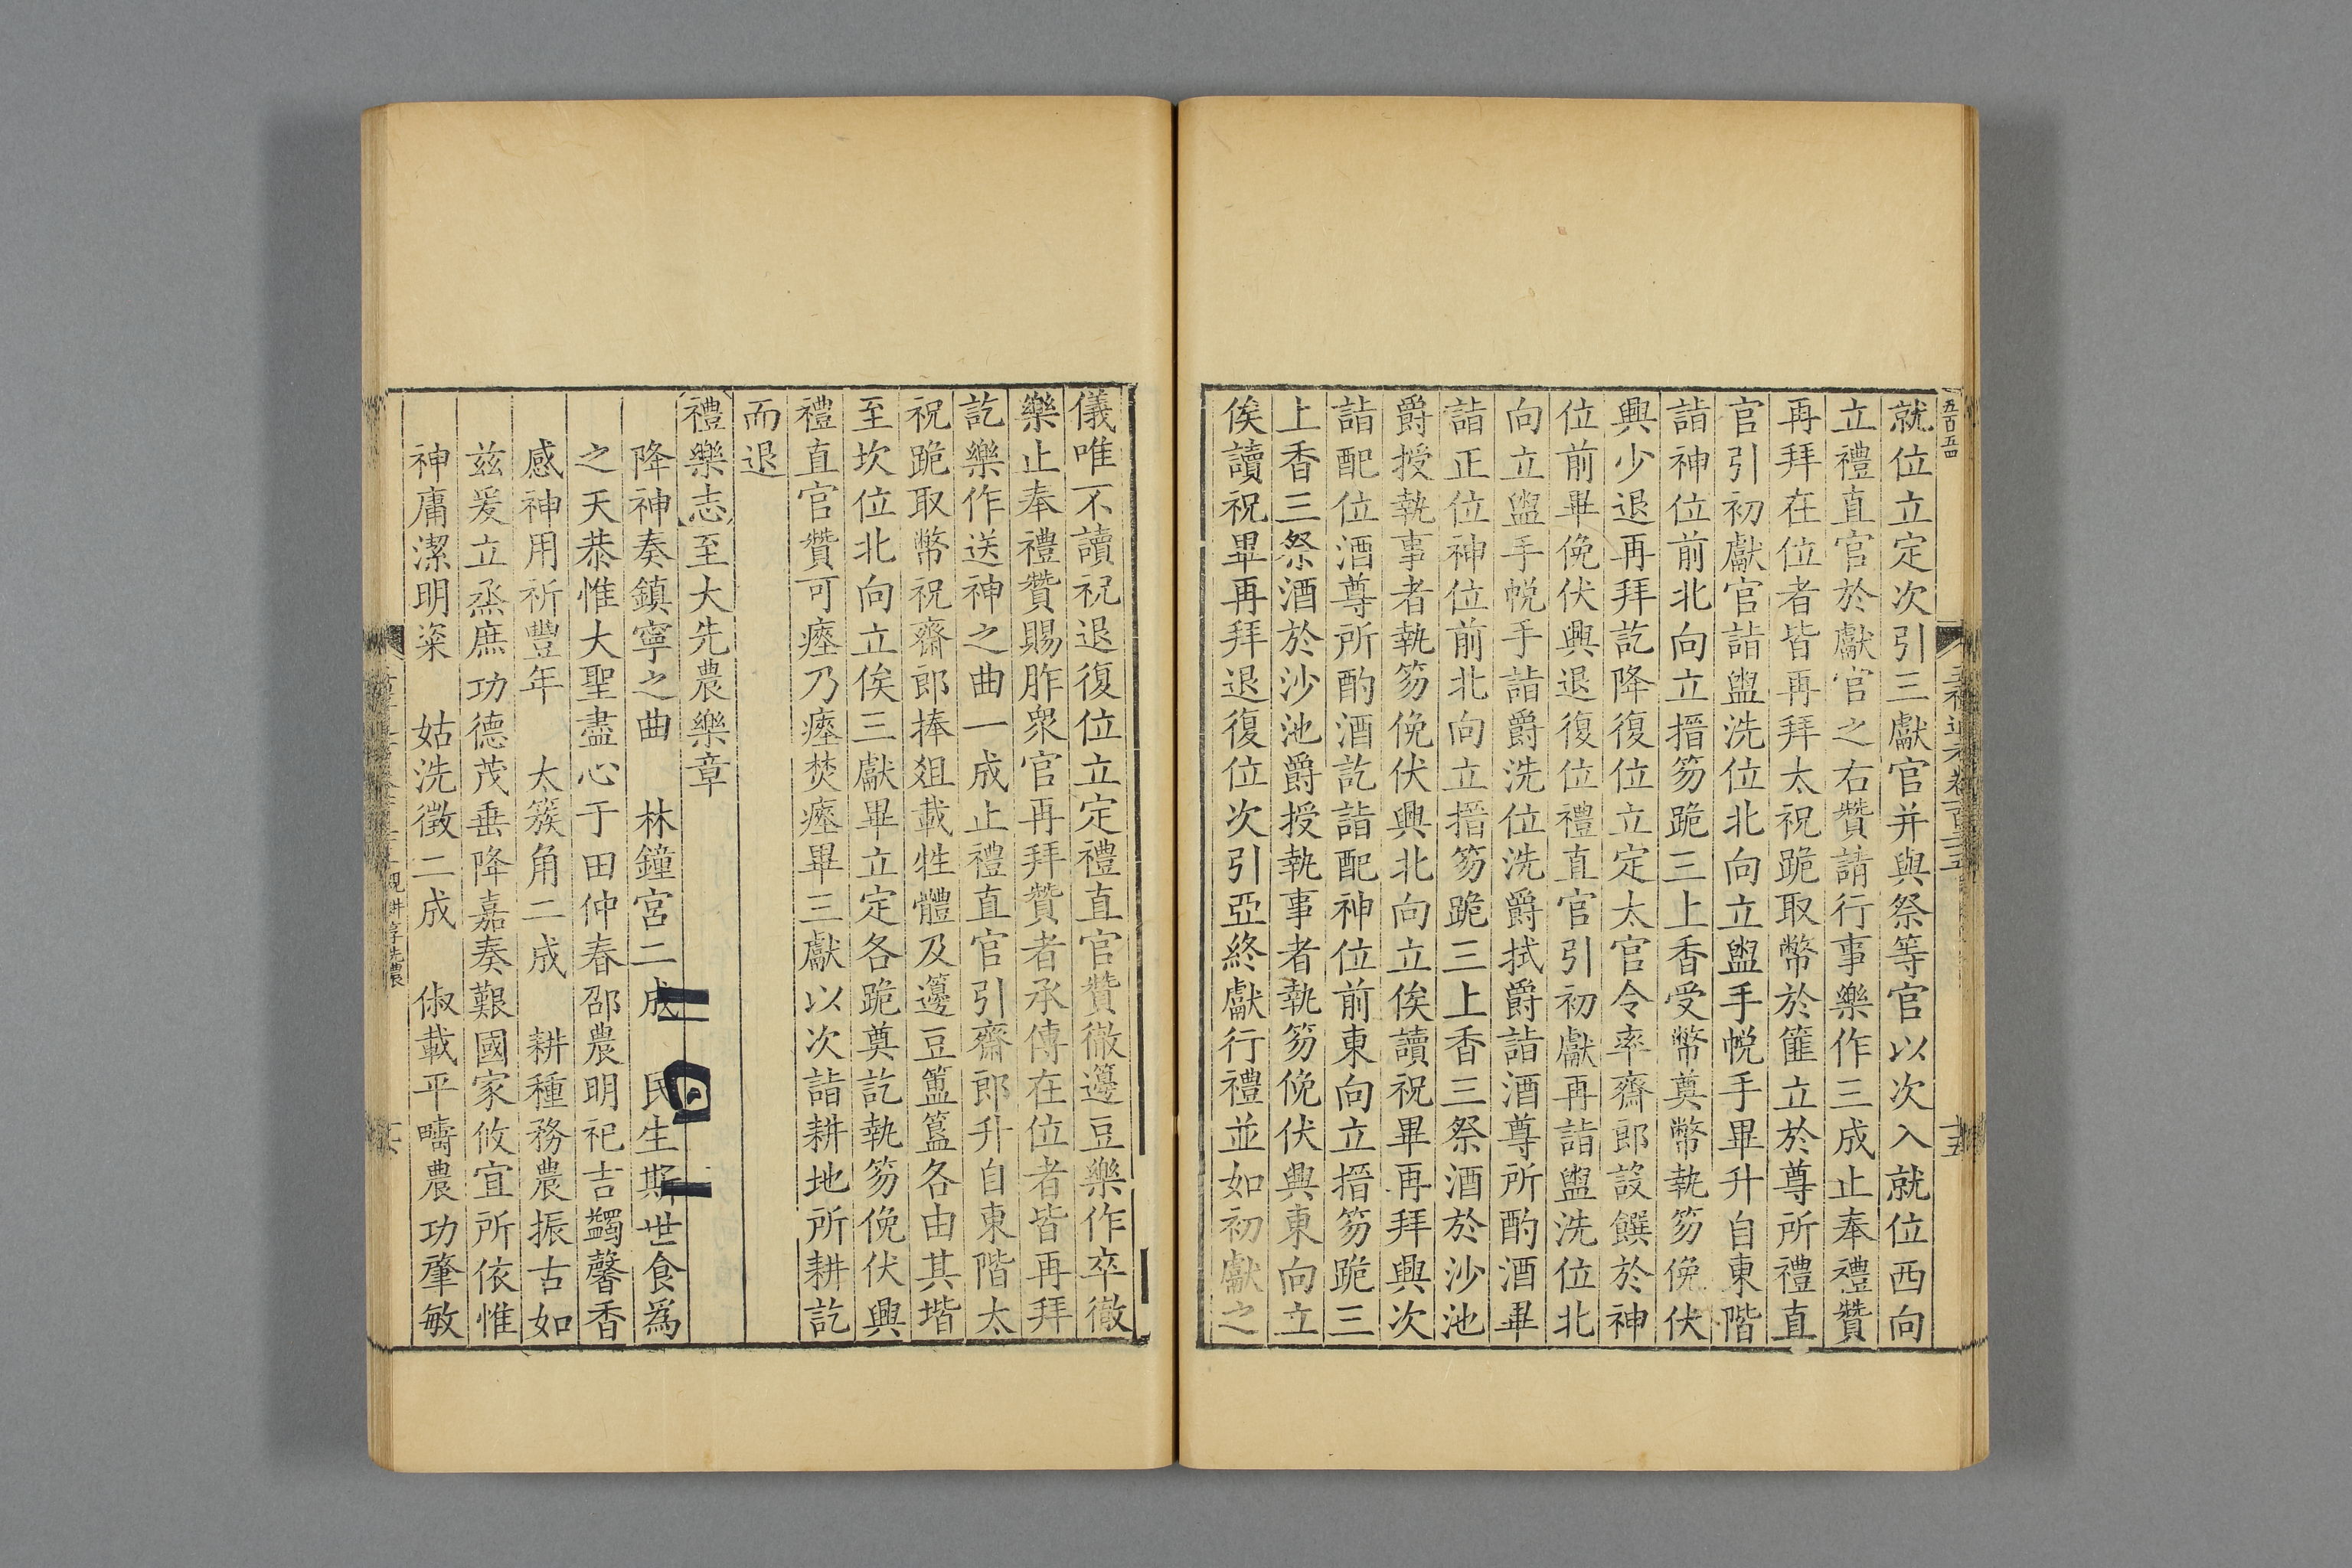 五百五四
就位立定次引三獻官并與祭等官以次入就位西向
立禮直官於獻官之右贊請行事樂作三成止奉禮贊
再拜在位者皆再拜太祝跪取幣於篚立於尊所禮直
官引初獻官詣盥洗位北向立盥手帨手畢升自東階
詣神位前北向立搢笏跪三上香受幣奠幣執笏俛伏
興少退再拜訖降復位立定太官令率齋郎設饌於神
位前畢俛伏興退復位禮直官引初獻再詣盥洗位北
向立盥手帨手詣爵洗位洗爵拭爵詣酒尊所酌酒畢
詣正位神位前北向立搢笏跪三上香三祭酒於沙池
爵授執事者執笏俛伏興北向立俟讀祝畢再拜興次
詣配位酒尊所酌酒訖詣配神位前東向立搢笏跪三
上香三祭酒於沙池爵授執事者執笏俛伏興東向立
俟讀祝畢再拜退復位次引亞終獻行禮並如初獻之
儀唯不讀祝退復位立定禮直官贊徹籩豆樂作卒徹
樂止奉禮贊賜胙衆官再拜贊者承傳在位者皆再拜
訖樂作送神之曲一成止禮直官引齋郎升自東階太
祝跪取幣祝齋郎捧爼載牲體及籩豆簠簋各由其堦
至坎位北向立俟三獻畢立定各跪奠訖執笏俛伏興
禮直官贊可瘞乃瘞焚瘞畢三獻以次詣耕地所耕訖
而退
禮樂志至大先農樂章
降神奏鎮寧之曲　林鐘宮二成　民生斯世食爲
之天恭惟大聖盡心于田仲春邵農明祀吉蠲馨香
感神用祈豐年　太簇角二成　耕種務農振古如
兹爰立烝庶功德茂垂降嘉奏艱國家攸宜所依惟
神庸潔明粢　姑洗徵二成　俶載平疇農功肇敏